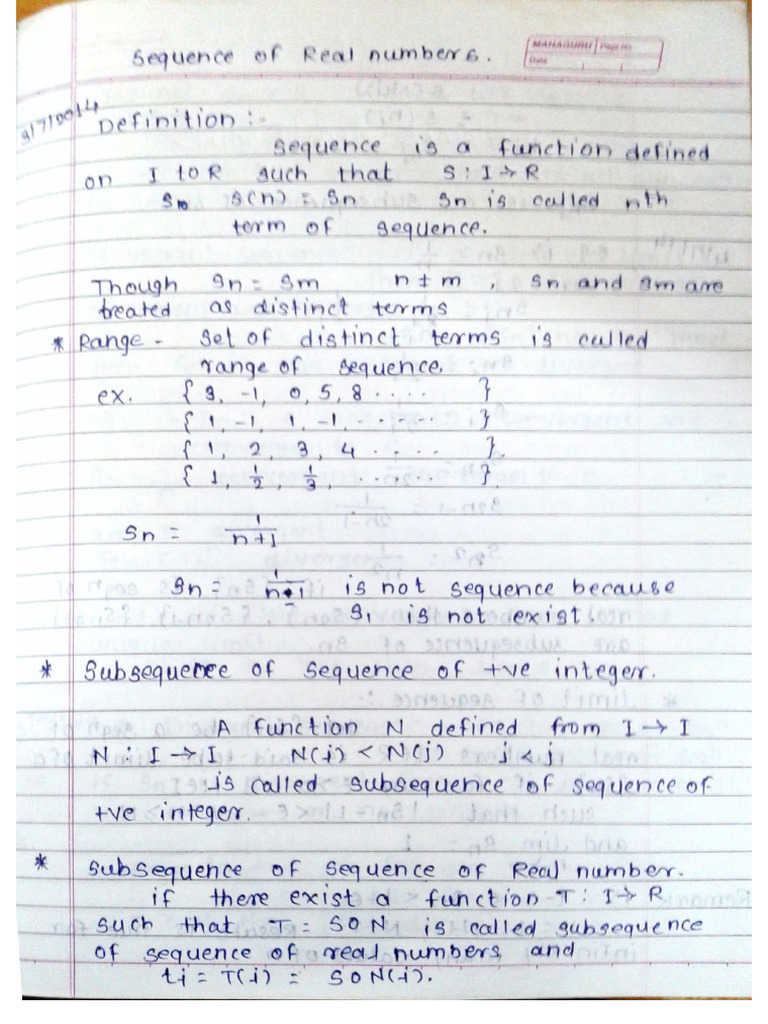 Sequence of Real numbers.
MAHAGURU Page No
Date
3/7/2014
Definition :-
Sequence is a function defined
on I to R such that S : I → R
s(n) = Sn Sn is called nth
term of sequence.
Though Sn = Sm n ≠ m , Sn and Sm are
treated as distinct terms
* Range - Set of distinct terms is called
range of sequence.
ex. { 3, -1, 0, 5, 8 ..... }
{ 1, -1, 1, -1, ...... }
{ 1, 2, 3, 4 ...... }
{ 1, 1/2, 1/3, ...... }
Sn = 1/n+1
Sn = 1/n-1 is not sequence because
S1 is not exist.
* Subsequence of sequence of +ve integer.
A function N defined from I → I
N : I → I N(i) < N(j) i < j
is called subsequence of sequence of
+ve integer.
* Subsequence of sequence of Real number.
if there exist a function T : I → R
such that T = SON is called subsequence
of sequence of real numbers and
ti = T(i) = SON(i).